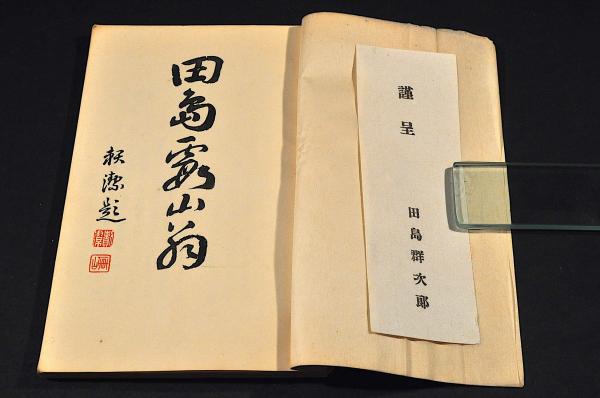 謹呈
田島群次郎
田島霞山翁
題